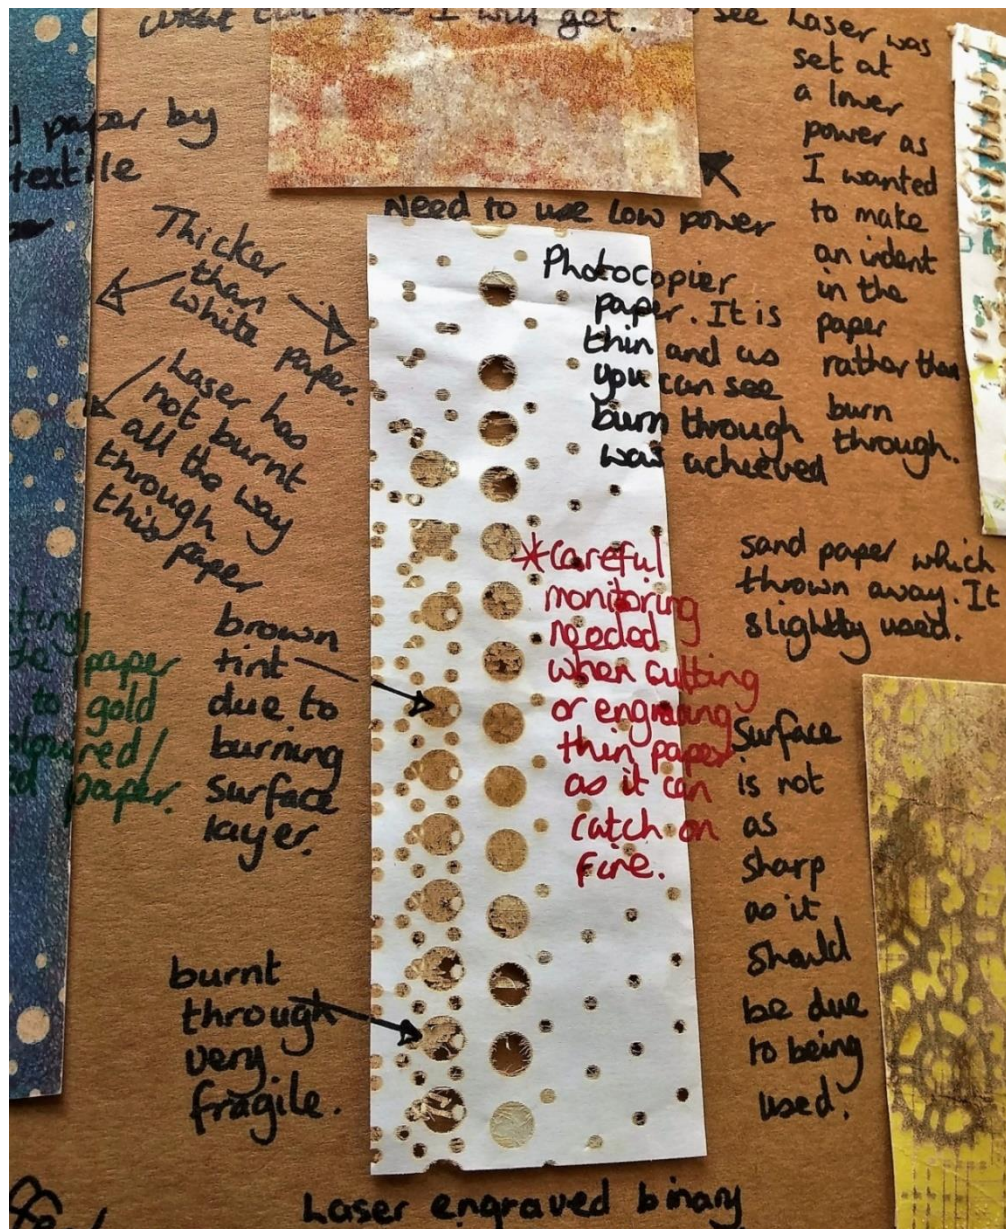 what outcomes I will get.
see Laser was
set at
a lower
power as
I wanted
to make
an indent
in the
paper
rather than
burn
through.
paper by
textile
Thicker
than
white
paper.
Laser has
not burnt
all the way
through
this paper
Need to use Low power
Photocopier
paper. It is
thin and as
you can see
burn through
was achieved
*careful
monitoring
needed
when cutting
or engraving
thin paper
as it can
catch on
fire.
sand paper which
thrown away. It
slightly used.
paper
to gold
paper.
brown
tint
due to
burning
surface
layer.
Surface
is not
as
sharp
as it
should
be due
to being
used.
burnt
through
very
fragile.
Laser engraved binary